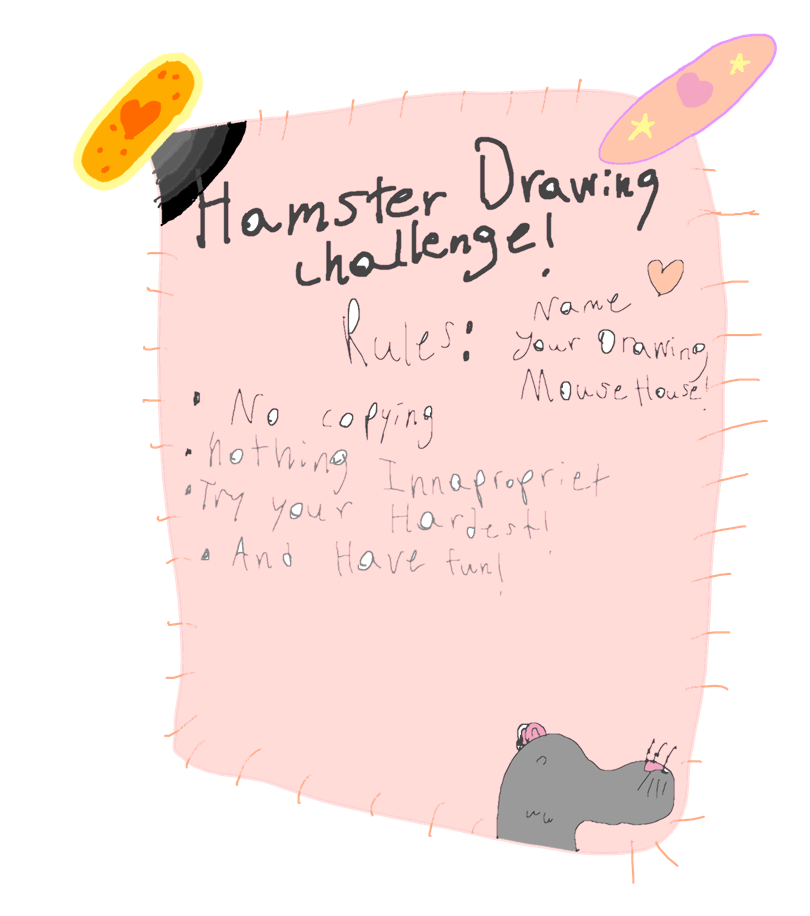 Hamster Drawing
challenge!
Rules:
Name
Your Drawing
Mouse House!
• No copying
• Nothing Innapropriet
• Try your Hardest!
• And Have fun!